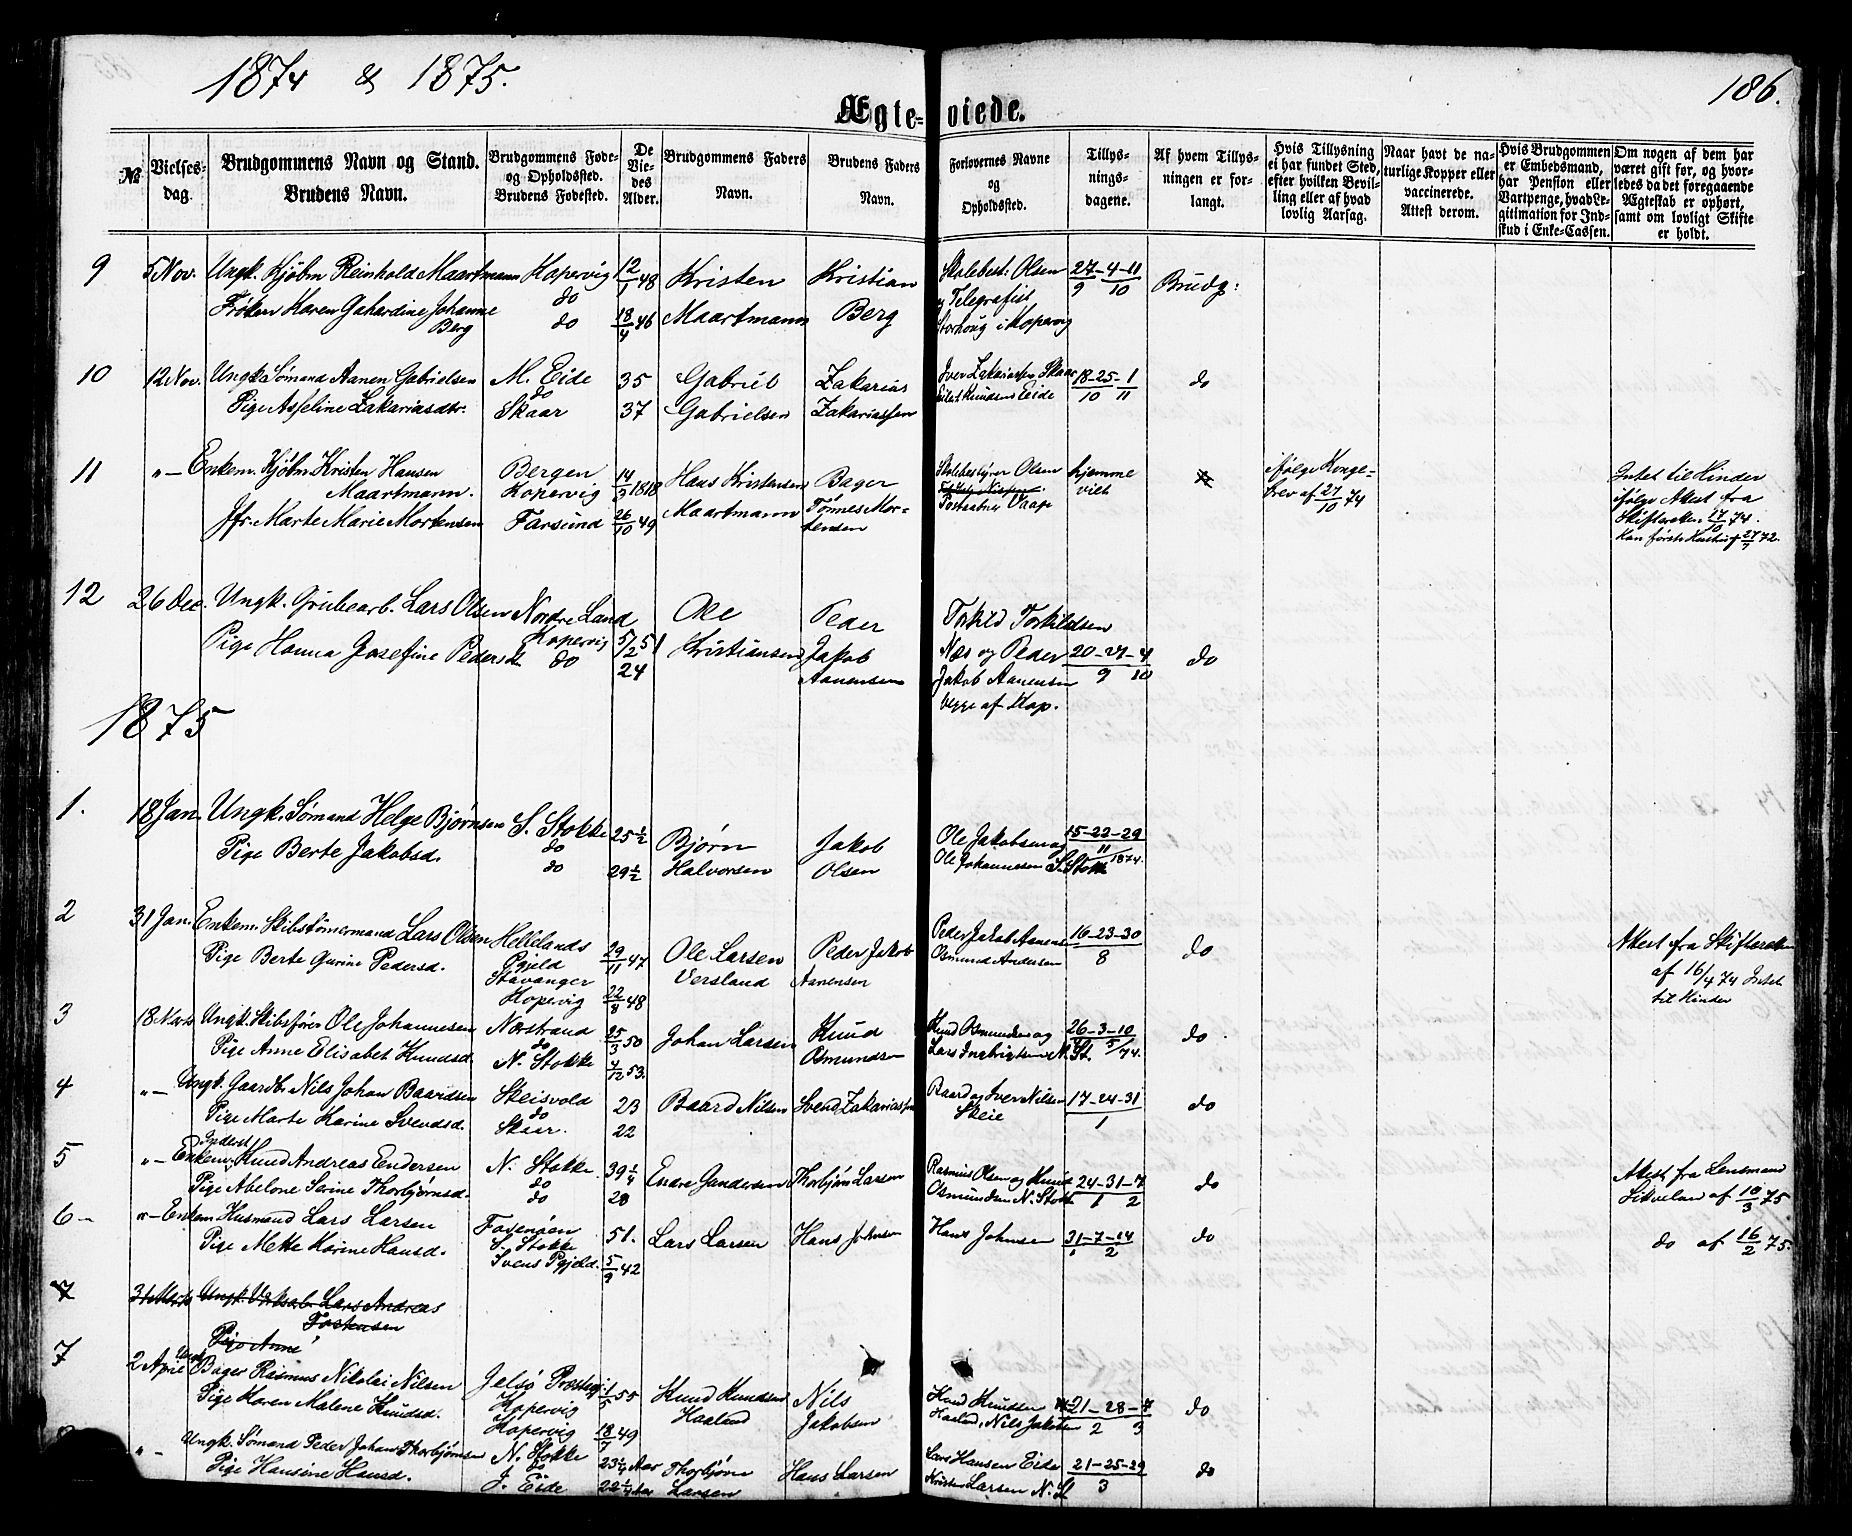 1874 & 1875.
186.
Ægte-viede.
№
Vielses-dag.
Brudgommens Navn og Stand.
Brudens Navn.
Brudgommens Føde- og Opholdssted.
Brudens Fødested.
De Vie-des Alder.
Brudgommens Faders Navn.
Brudens Faders Navn.
Forlovernes Navne og Opholdssted.
Tillys-nings-dagene.
Af hvem Tillys-ningen er for-langt.
Hvis Tillysning ei har fundet Sted, efter hvilken Bevil-ling eller af hvad lovlig Aarsag.
Naar havt de na-turlige Kopper eller vaccinerede. Attest derom.
Hvis Brudgommen er Embedsmand, har Pension eller Vartpenge, hvad Le-gitimation for Ind-skud i Enke-Cassen.
Om nogen af dem har været gift før, og hvor-ledes da det foregaaende Ægteskab er ophørt, samt om lovligt Skifte er holdt.
9 5 Nov. Ungk. Kjøbm Reinholdt Maartmann Kopervig 12/1 48 Kristen Kristian Skolebest: Olsen 27-4-11 Brudg:
do 9 10
Frøken Karen Gahardine Johanne Berg do 18/4 46 Maartmann Berg og Telegrafist Storhoug i Kopervig
10 12 Nov. Ungk. Sømand Aanen Gabrielsen M. Eide 35 Gabriel Zakarias Iver Zakariassen Skaar 18-25-1 do
do 10 11
Pige Asseline Zakariasdtr. Skaar 37 Gabrielsen Zakariassen Knudsen Eide
11 "- Enkem. Kjøbm Kristen Hansen Maartmann. Bergen Kopervig 14/3 1818 Hans Kristensen Bager Olsen hjemme viet ifølge Konge-brev af 27/10 74 Intet til Hinder ifølge Attest fra Skifteretten 17/10 74.
Jfr. Marte Marie Mortensen Farsund 26/10 49 Maartmann Tønnes Mor-tensen Vaage
12 26 Dec. Ungk. Grubearb. Lars Olsen Nordre Land Kopervig 5/2 51 Ole Peder Torkild Torkildsen
Pige Hanna Josefine Pedersd. do 24 Kristiansen Jakob Aanensen Næs og Peder Jakob Aanensen begge af Kop. 20-27-4 do
9 10
1875
1. 18 Jan. Ungk. Sømand Helge Bjørnsen S. Stokke 25½ Bjørn Jakob Ole Jakobsen og 15-22-29
do 11/1874.
Pige Berte Jakobsd. do 29½ Halvorsen Olsen Ole Johannessen S. Stokk
2 31 Jan. Enkem. Skibstømermand Lars Olsen Hellelands Pgjeld Stavanger 29/11 47 Ole Larsen Peder Jakob Peder Jakob Aanens 16-23-30 do Attest fra Skifteretten af 16/4 74 Intet til Hinder
8
Pige Berte Gurine Pedersd. Kopervig 22/8 48 Versland Aanensen Osmund Andersen
3 18 Marts Ungk. Skibsfører Ole Johannesen Nordstrand 25/3 50 Johan Larsen Knud Knud Osmundsen og 26-3-10 do
do 5/74.
Pige Anne Elisabet Knudsd. N. Stokke 4/12 53. Osmundsen Lars Ingbrigtsen N. St.
4 "- Ungk. Gaardb. Nils Johan Baardsen Skeisvold 23 Baard Nilsen Svend Zakariassen Baard og Iver Nilsen Skeie 17-24-31 do
do 1
Pige Marte Karine Svendsd. Skaar. 22
5 "- Enkem. Inderst Knud Andreas Endersen N. Stokke 39¼ Endre Gundersen Thorbjørn Larsen Rasmus Olsen og Knud 24-31-7 do Attest fra Lensmand af 10/3 75
do 1 2
Pige Abelone Serine Thorbjørnsd. do 28 Osmundsen N. Stokk
6- "- Enkem Husmand Lars Larsen S. Stokke 51. Lars Larsen Hans Johnsen Hans Johnsen 31-7-14 do do af 16/2 75.
1 2
Pige Mette Karine Hansd. Svens Pgjeld. 5/9 42
7 31 Marts Ungk. Lars Andreas Tostensen
Pige Anne
7 2 April Ungk Bager Rasmus Nikolai Nilsen Jelsø Præstegj Kopervig 1/5 55 Knud Knudsen Nils Knud Knudsen 21-28-7 do
2 3
Pige Karen Malene Knudsd. Kopervig 18/7 49 Haaland Jakobsen Haaland, Nils Jakobsen
"- Ungk. Sømand Peder Johan Thorbjørnsen N. Stokke 23¼ Aar Thorbjørn Hans Larsen Lars Hansen Eide 21-25-29 do
do 3
Pige Hansine Hansd. J. Eide 22¼ Aar Larsen Larsen N. St